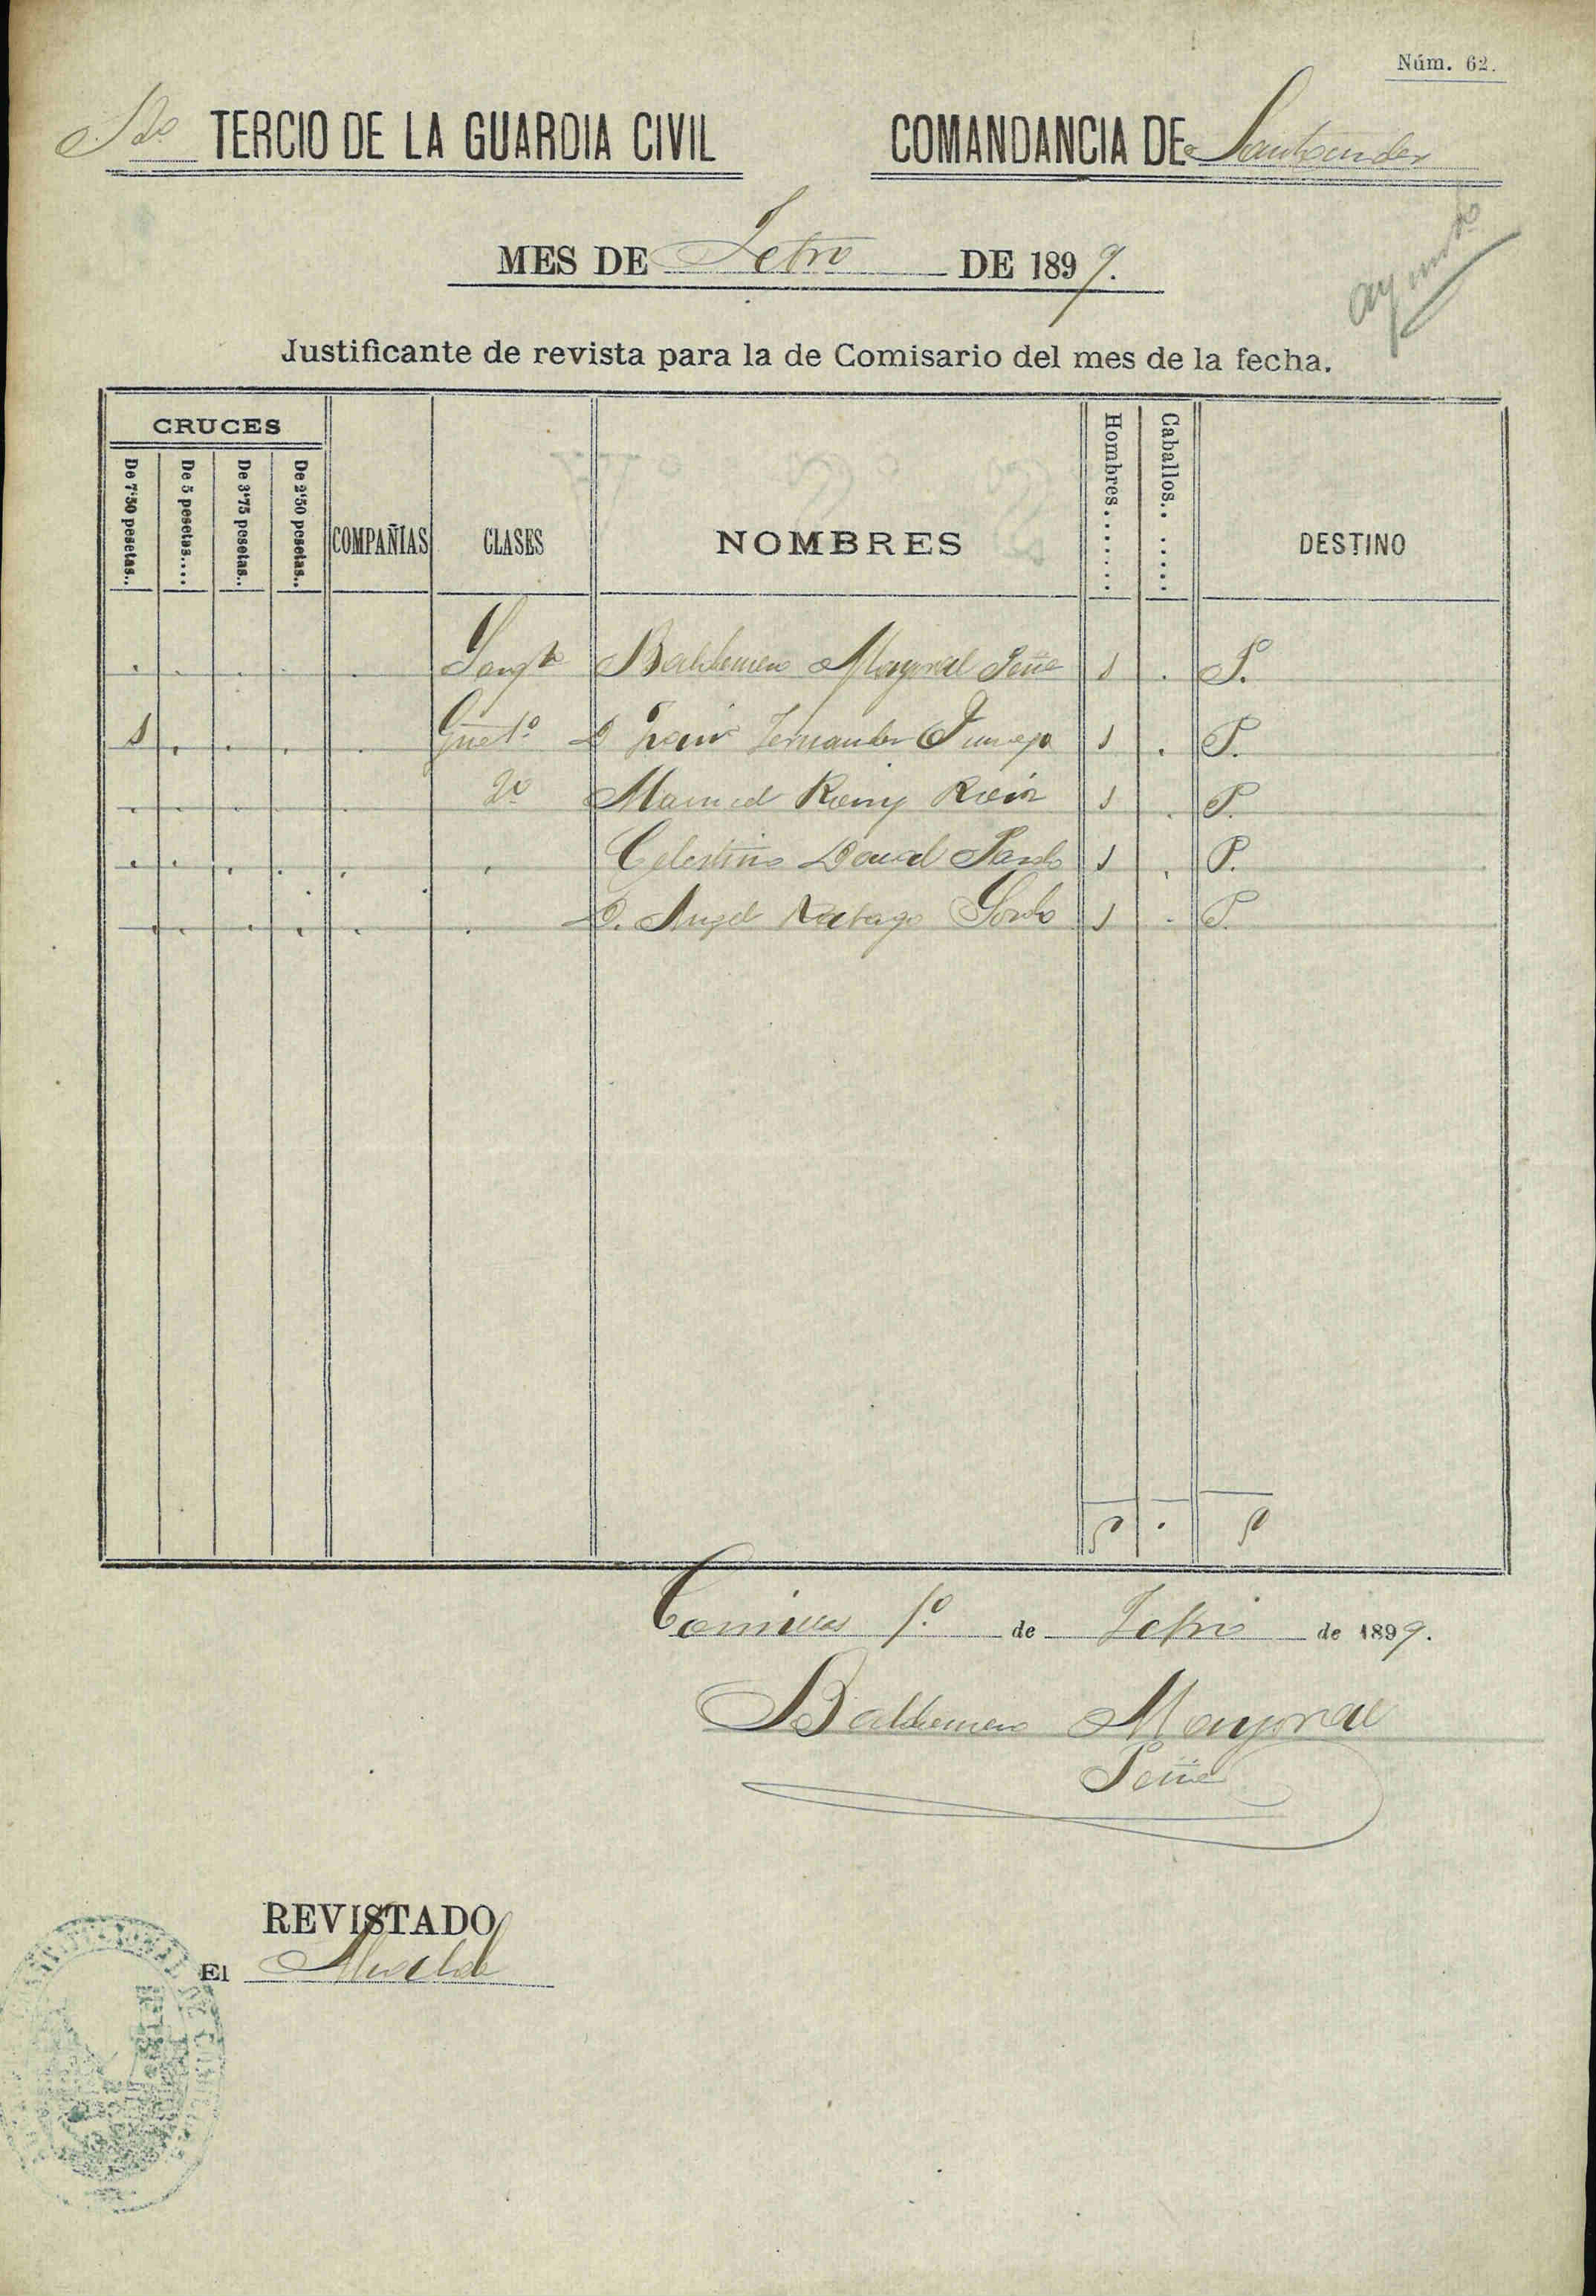 Núm. 62.
TERCIO DE LA GUARDIA CIVIL COMANDANCIA DE Santander
MES DE Febro DE 1899.
Justificante de revista para la de Comisario del mes de la fecha.
CRUCES
De 7'50 pesetas..
De 5 pesetas....
De 3'75 pesetas..
De 2'50 pesetas..
COMPAÑIAS
CLASES
NOMBRES
Hombres.......
Caballos.. .....
DESTINO
Sargto Baldomero Mayoral Peña 1 . P.
1 . . . . D Fernandez 1 . P.
2º Manuel 1 . P.
Celestino Pardo 1 . P.
D. Angel Rabago Gordo 1 . P.
5 . 5
Comillas 1º. de Febrº de 1899.
Baldomero Mayoral
Peña
REVISTADO
El Alcalde